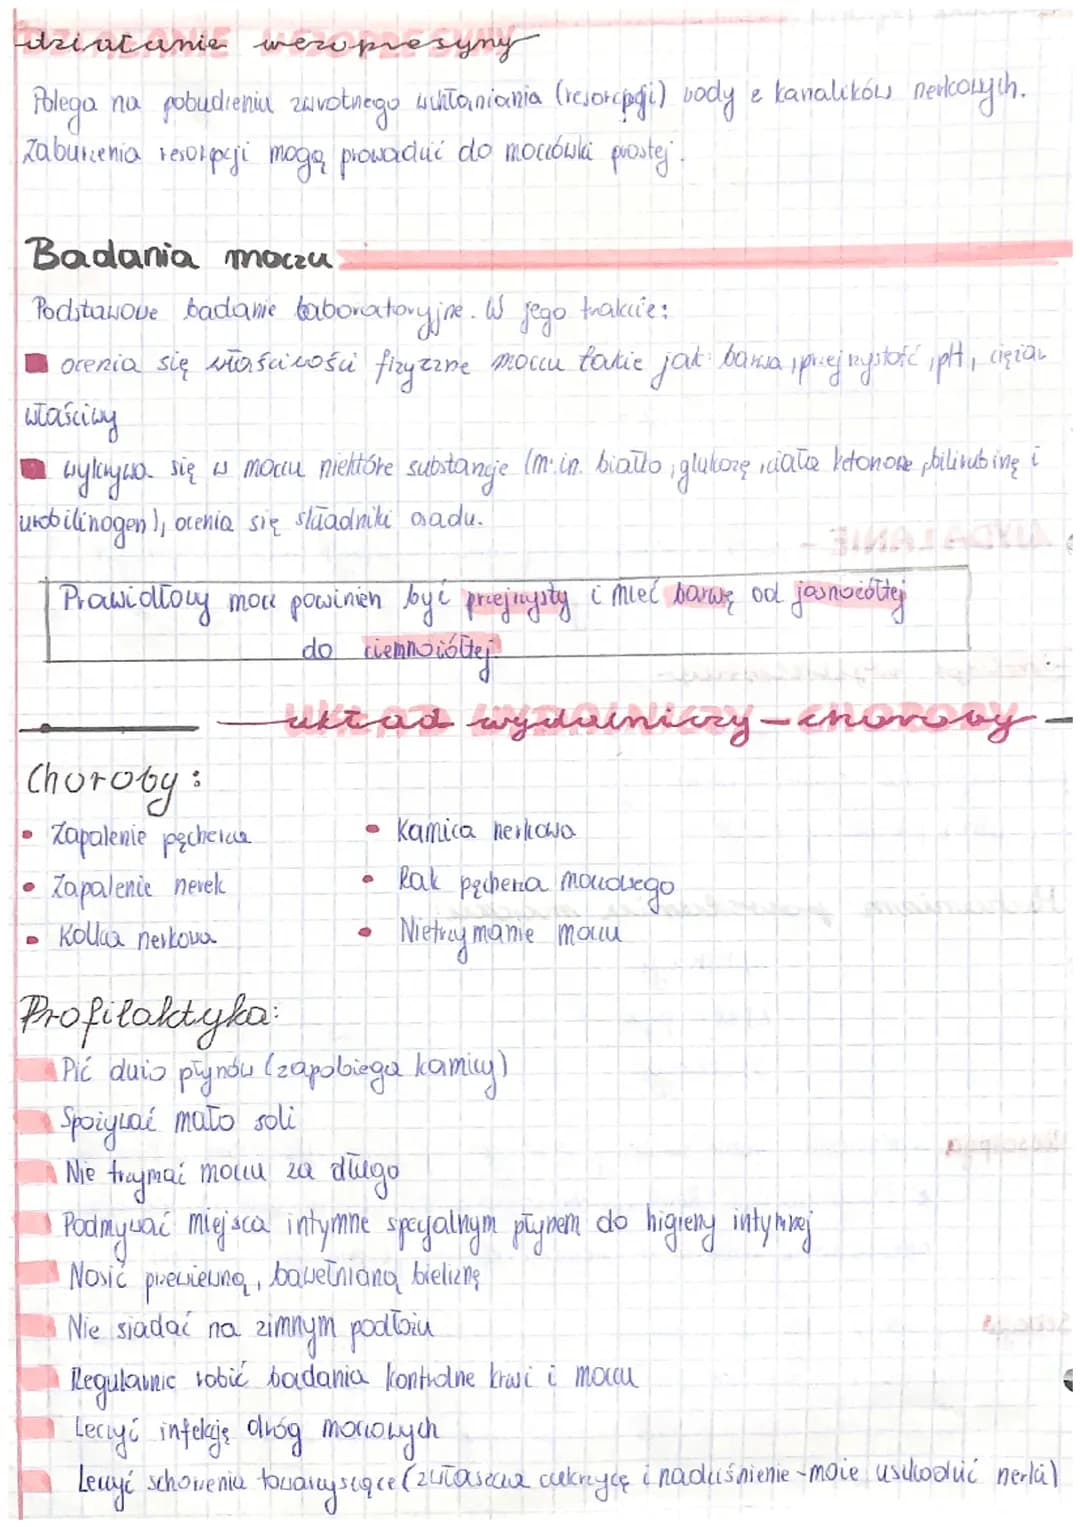 działanie wazopresyny
Polega na pobudzeniu zwrotnego wchłaniania (resorcpcji) wody z kanalików nerkowych.
Zaburzenia resorpcji mogą prowadzić do moczówki prostej.
Badania moczu
Podstawowe badanie laboratoryjne. W jego trakcie:
ocenia się właściwości fizyczne moczu takie jak: barwa, przejrzystość, pH, ciężar
właściwy
wykrywa się w moczu niektóre substancje (m.in. białko, glukozę, ciała ketonowe, bilirubinę i
urobilinogen), ocenia się składniki osadu.
Prawidłowy mocz powinien być przejrzysty i mieć barwę od jasnożółtej
do ciemnożółtej
układ wydalniczy - choroby
Choroby:
• Zapalenie pęcherza • Kamica nerkowa
• Zapalenie nerek • Rak pęcherza moczowego
• Kolka nerkowa • Nietrzymanie moczu
Profilaktyka:
Pić dużo płynów (zapobiega kamicy)
Spożywać mało soli
Nie trzymać moczu za długo
Podmywać miejsca intymne specjalnym płynem do higieny intymnej
Nosić przewiewną, bawełnianą bieliznę
Nie siadać na zimnym podłożu
Regularnie robić badania kontrolne krwi i moczu
Leczyć infekcję dróg moczowych
Leczyć schorzenia towarzyszące (zwłaszcza cukrzycę i nadciśnienie - może uszkodzić nerki)